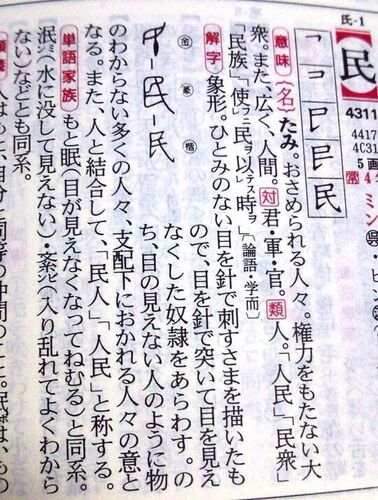 氏-1
【民】
4311
4417
4C31
5画
常4
ミン呉
民
意味〈名〉たみ。おさめられる人々。権力をもたない大
衆。また、広く、人間。対君・軍・官。類人。「人民」「民衆」
「民族」「使レ民ヲ以レテス時ヲ」〔論語・学而〕
解字 象形。ひとみのない目を針で刺すさまを描いたも
ので、目を針で突いて目を見え
なくした奴隷をあらわす。の
ち、目の見えない人のように物
金 篆 楷
民
のわからない多くの人々、支配下におかれる人々の意と
なる。また、人と結合して、「民人」「人民」と称する。
単語家族 もと眠(目が見えなくなってねむる)と同系。
泯ビン(水に没して見えない)・紊ビン(入り乱れてよくわから
ない)などとも同系。
人はもと、自分と同等の仲間のこと。民は、もの